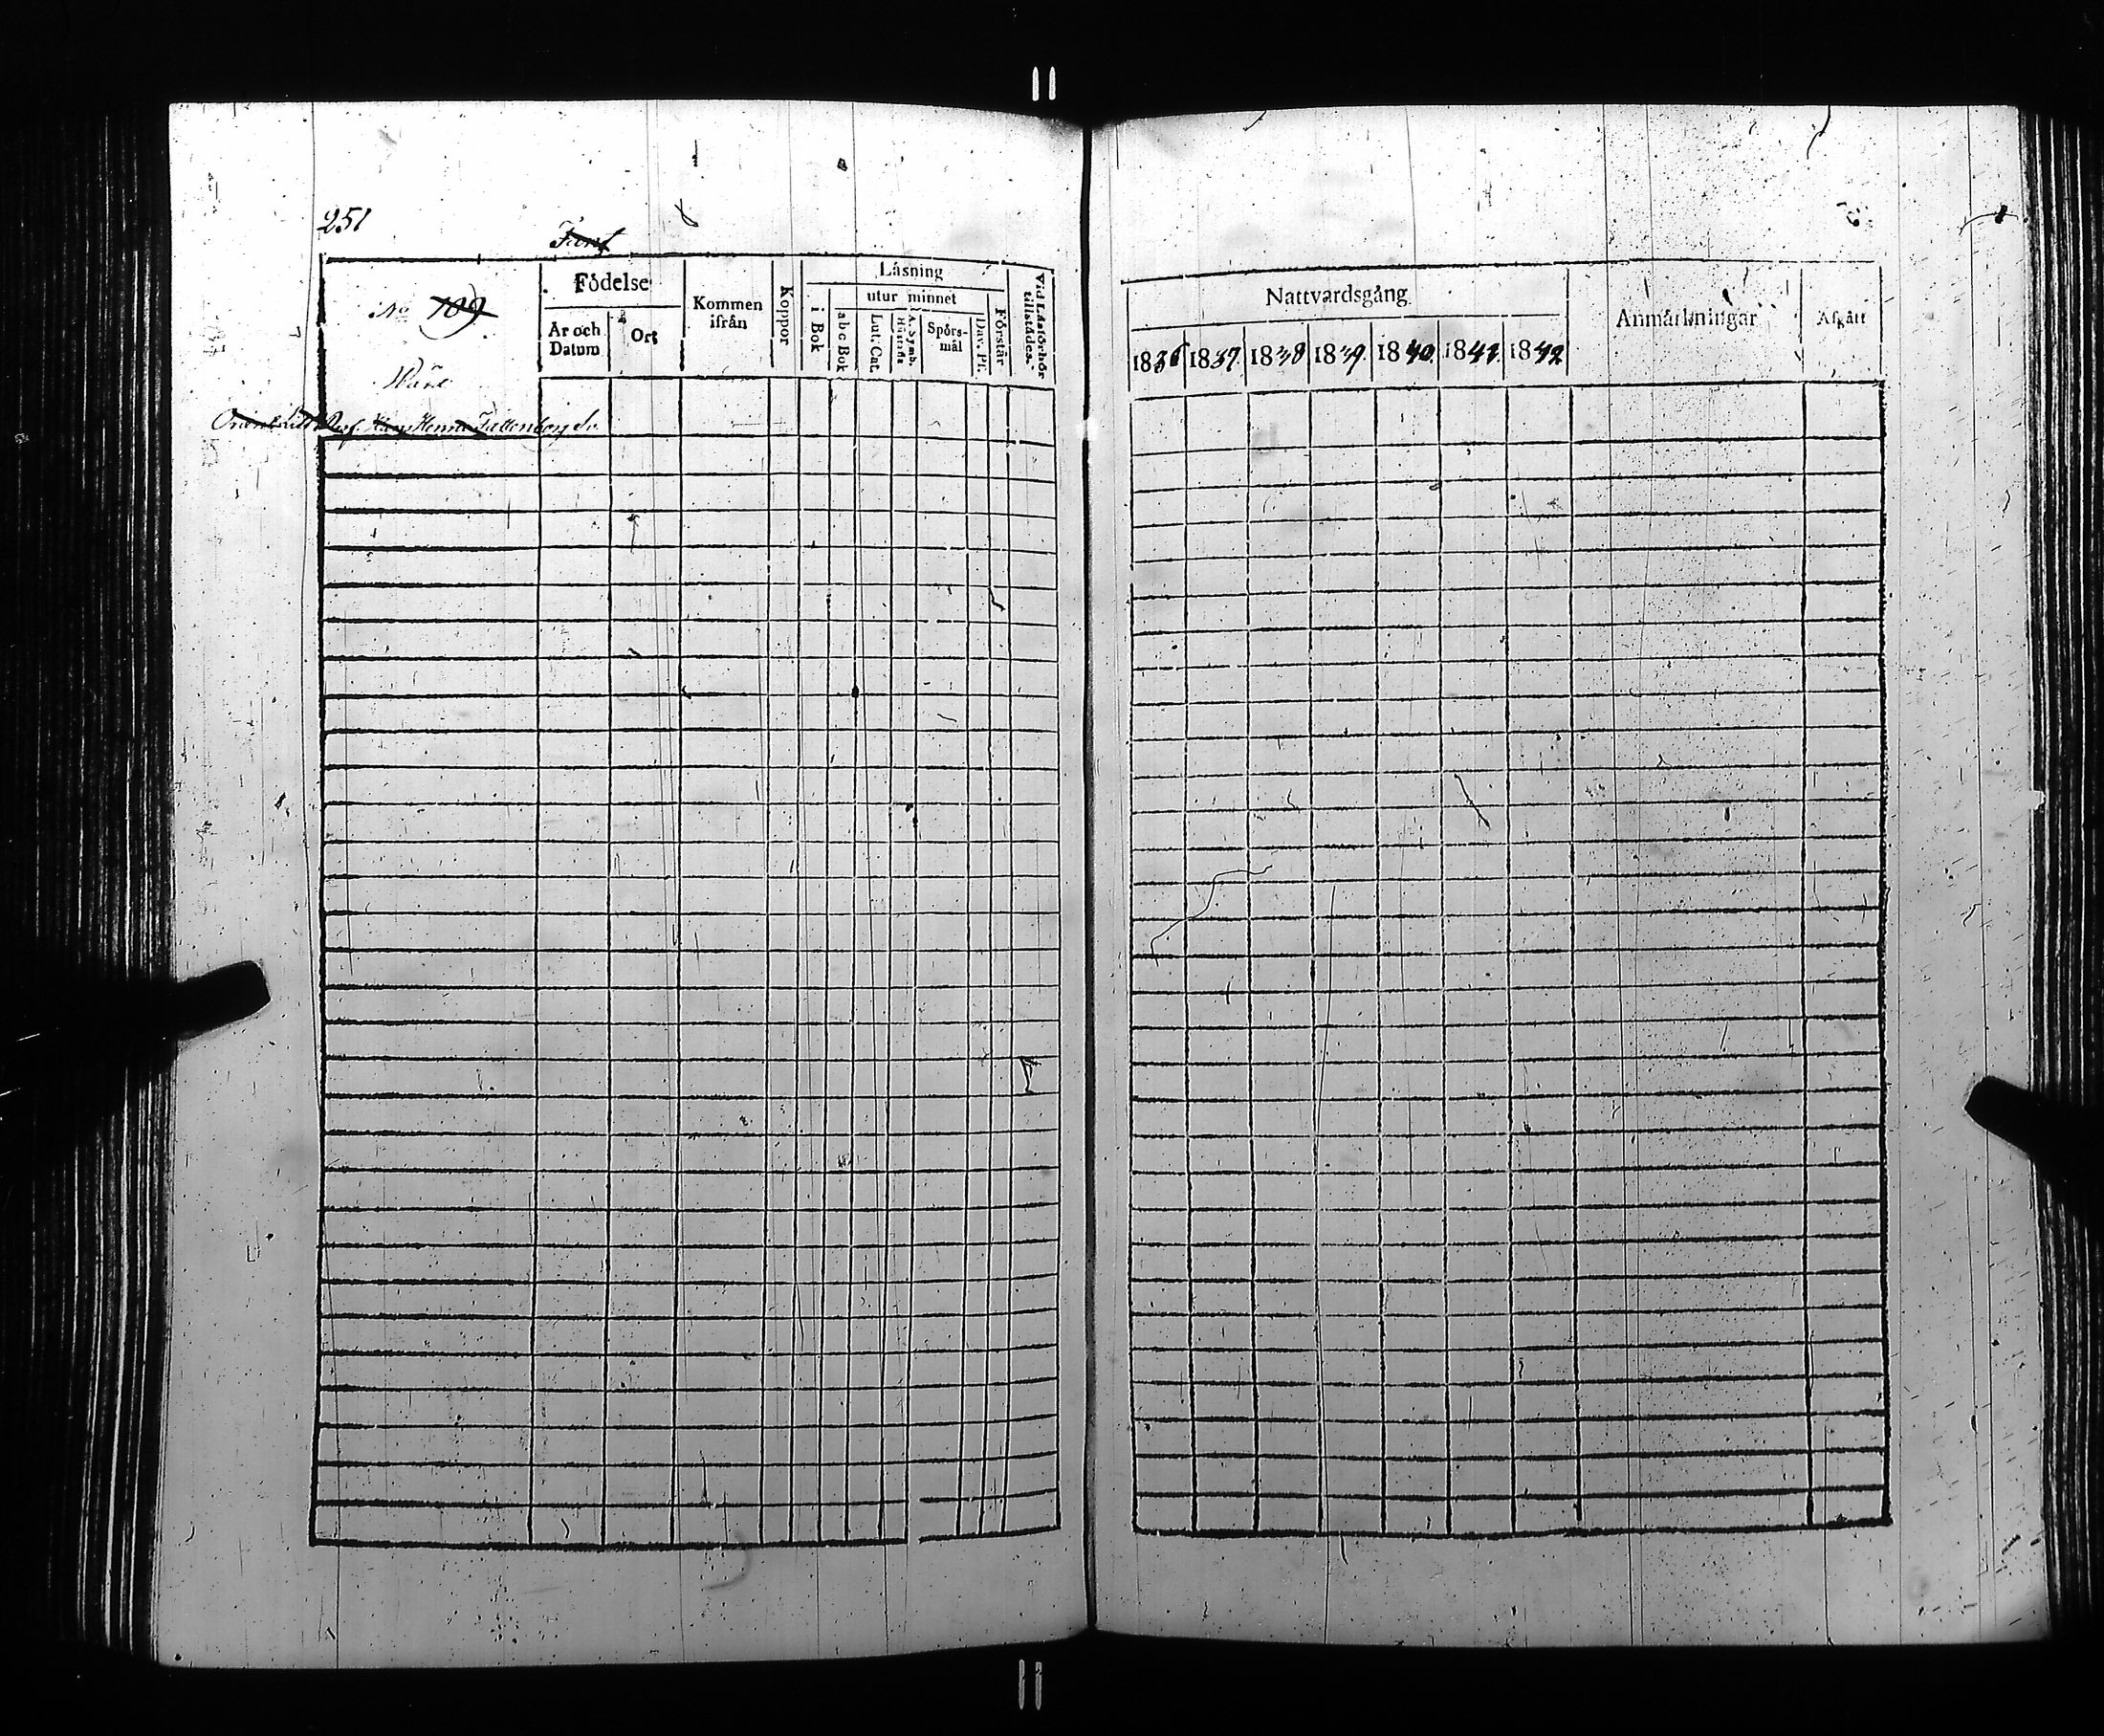 251
No 109.
Födelse
År och Datum
Ort
Kommen ifrån
Koppor
Läsning
i Bok
utur minnet
abc Bok
Lut. Cat.
A. Symb. Hustafla
Spörs-mål
Dav. Ps.
Förstår
Vid Läsförhör tillstädes.
Nattvardsgång
1836 1837. 1838 1839. 1840. 1841. 1842
Anmärkningar
Afgått